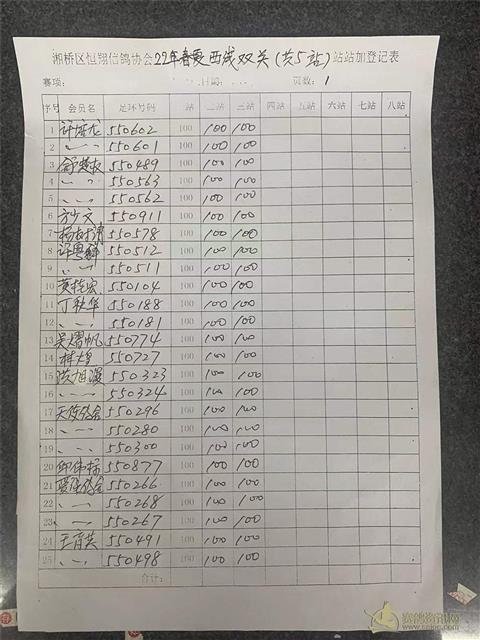 湘桥区恒翔信鸽协会22年春夏西线双关(共5站)站站加登记表
赛项: 日期: 页数: 1
序号 会员名 足环号码 一站 二站 三站 四站 五站 六站 七站 八站
1 550602 100 100 100
2 〃 550601 100 100 100
3 550489 100 100 100
4 〃 550563 100 100 100
5 〃 550562 100 100 100
6 方少文 550911 100 100 100
7 杨树涛 550578 100 100 100
8 550512 100 100 100
9 〃 550511 100 100 100
10 黄桂宏 550104 100 100 100
11 丁秋华 550188 100 100 100
12 〃 550181 100 100 100
13 吴熠帆 550774 100 100 100
14 林煌 550727 100 100 100
15 洪旭漫 550323 100 100 100
16 〃 550324 100 100 100
17 天使鸽舍 550296 100 100 100
18 〃 550280 100 100 100
19 〃 550300 100 100 100
20 邱伟标 550877 100 100 100
21 鸽舍 550266 100 100 100
22 〃 550268 100 100 100
23 〃 550267 100 100 100
24 王育英 550491 100 100 100
25 〃 550498 100 100 100
合计:
赛鸽资讯网